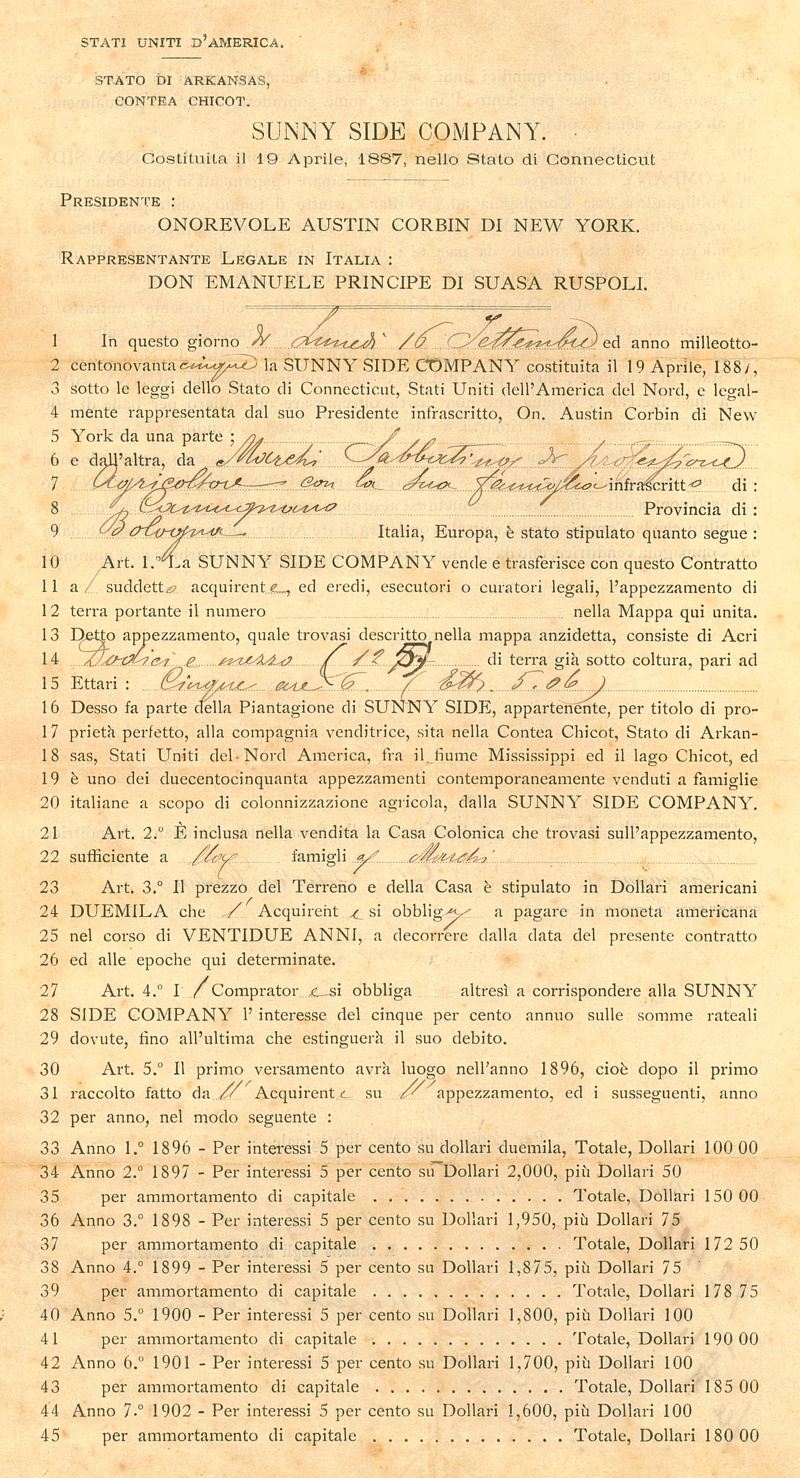 STATI UNITI D'AMERICA.
STATO DI ARKANSAS,
CONTEA CHICOT.
SUNNY SIDE COMPANY.
Costituita il 19 Aprile, 1887, nello Stato di Connecticut
PRESIDENTE :
ONOREVOLE AUSTIN CORBIN DI NEW YORK.
RAPPRESENTANTE LEGALE IN ITALIA :
DON EMANUELE PRINCIPE DI SUASA RUSPOLI.
1 In questo giorno di Lunedì 16 Settembre ed anno milleotto-
2 centonovanta cinque la SUNNY SIDE COMPANY costituita il 19 Aprile, 1887,
3 sotto le leggi dello Stato di Connecticut, Stati Uniti dell'America del Nord, e legal-
4 mente rappresentata dal suo Presidente infrascritto, On. Austin Corbin di New
5 York da una parte ;
6 e dall'altra, da Marchi Sabbatino di professione
7 Agricoltore con la sua famiglia infrascritto di :
8 Camugnano Provincia di :
9 Bologna Italia, Europa, è stato stipulato quanto segue :
10 Art. 1.º La SUNNY SIDE COMPANY vende e trasferisce con questo Contratto
11 al suddetto acquirente, ed eredi, esecutori o curatori legali, l'appezzamento di
12 terra portante il numero nella Mappa qui unita.
13 Detto appezzamento, quale trovasi descritto nella mappa anzidetta, consiste di Acri
14 Dodici e mezzo (12 di terra già sotto coltura, pari ad
15 Ettari : Cinque are 6. (Ett. 5.06)
16 Desso fa parte della Piantagione di SUNNY SIDE, appartenente, per titolo di pro-
17 prietà perfetto, alla compagnia venditrice, sita nella Contea Chicot, Stato di Arkan-
18 sas, Stati Uniti del Nord America, fra il fiume Mississippi ed il lago Chicot, ed
19 è uno dei duecentocinquanta appezzamenti contemporaneamente venduti a famiglie
20 italiane a scopo di colonnizzazione agricola, dalla SUNNY SIDE COMPANY.
21 Art. 2.º È inclusa nella vendita la Casa Colonica che trovasi sull'appezzamento,
22 sufficiente a famiglia Marchi
23 Art. 3.º Il prezzo del Terreno e della Casa è stipulato in Dollari americani
24 DUEMILA che l'Acquirente si obbliga a pagare in moneta americana
25 nel corso di VENTIDUE ANNI, a decorrere dalla data del presente contratto
26 ed alle epoche qui determinate.
27 Art. 4.º Il Compratore si obbliga altresì a corrispondere alla SUNNY
28 SIDE COMPANY l'interesse del cinque per cento annuo sulle somme rateali
29 dovute, fino all'ultima che estinguerà il suo debito.
30 Art. 5.º Il primo versamento avrà luogo nell'anno 1896, cioè dopo il primo
31 raccolto fatto dall'Acquirente su ll'appezzamento, ed i susseguenti, anno
32 per anno, nel modo seguente :
33 Anno 1.º 1896 - Per interessi 5 per cento su dollari duemila, Totale, Dollari 100 00
34 Anno 2.º 1897 - Per interessi 5 per cento su Dollari 2,000, più Dollari 50
35 per ammortamento di capitale . . . . . . . . . . . . . Totale, Dollari 150 00
36 Anno 3.º 1898 - Per interessi 5 per cento su Dollari 1,950, più Dollari 75
37 per ammortamento di capitale . . . . . . . . . . . . . Totale, Dollari 172 50
38 Anno 4.º 1899 - Per interessi 5 per cento su Dollari 1,875, più Dollari 75
39 per ammortamento di capitale . . . . . . . . . . . . . Totale, Dollari 178 75
40 Anno 5.º 1900 - Per interessi 5 per cento su Dollari 1,800, più Dollari 100
41 per ammortamento di capitale . . . . . . . . . . . . . Totale, Dollari 190 00
42 Anno 6.º 1901 - Per interessi 5 per cento su Dollari 1,700, più Dollari 100
43 per ammortamento di capitale . . . . . . . . . . . . . Totale, Dollari 185 00
44 Anno 7.º 1902 - Per interessi 5 per cento su Dollari 1,600, più Dollari 100
45 per ammortamento di capitale . . . . . . . . . . . . . Totale, Dollari 180 00